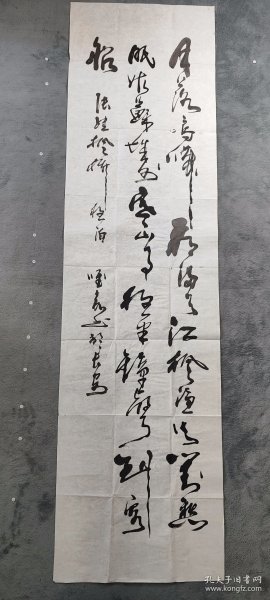 月落乌啼霜满天江枫渔火对愁
眠姑苏城外寒山寺夜半钟声到客
船 张继枫桥夜泊
孔夫子旧书网